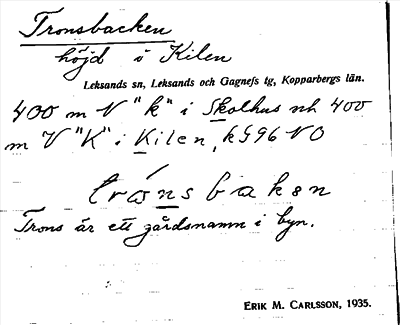 Tronsbacken
höjd i Kilen
Leksands sn, Leksands och Gagnefs tg, Kopparbergs län.
400 m V "k" i Skolhus nh 400
m V "K" i Kilen, k 96 NO
trónsbakən
Trons är ett gårdsnamn i byn.
ERIK M. CARLSSON, 1935.